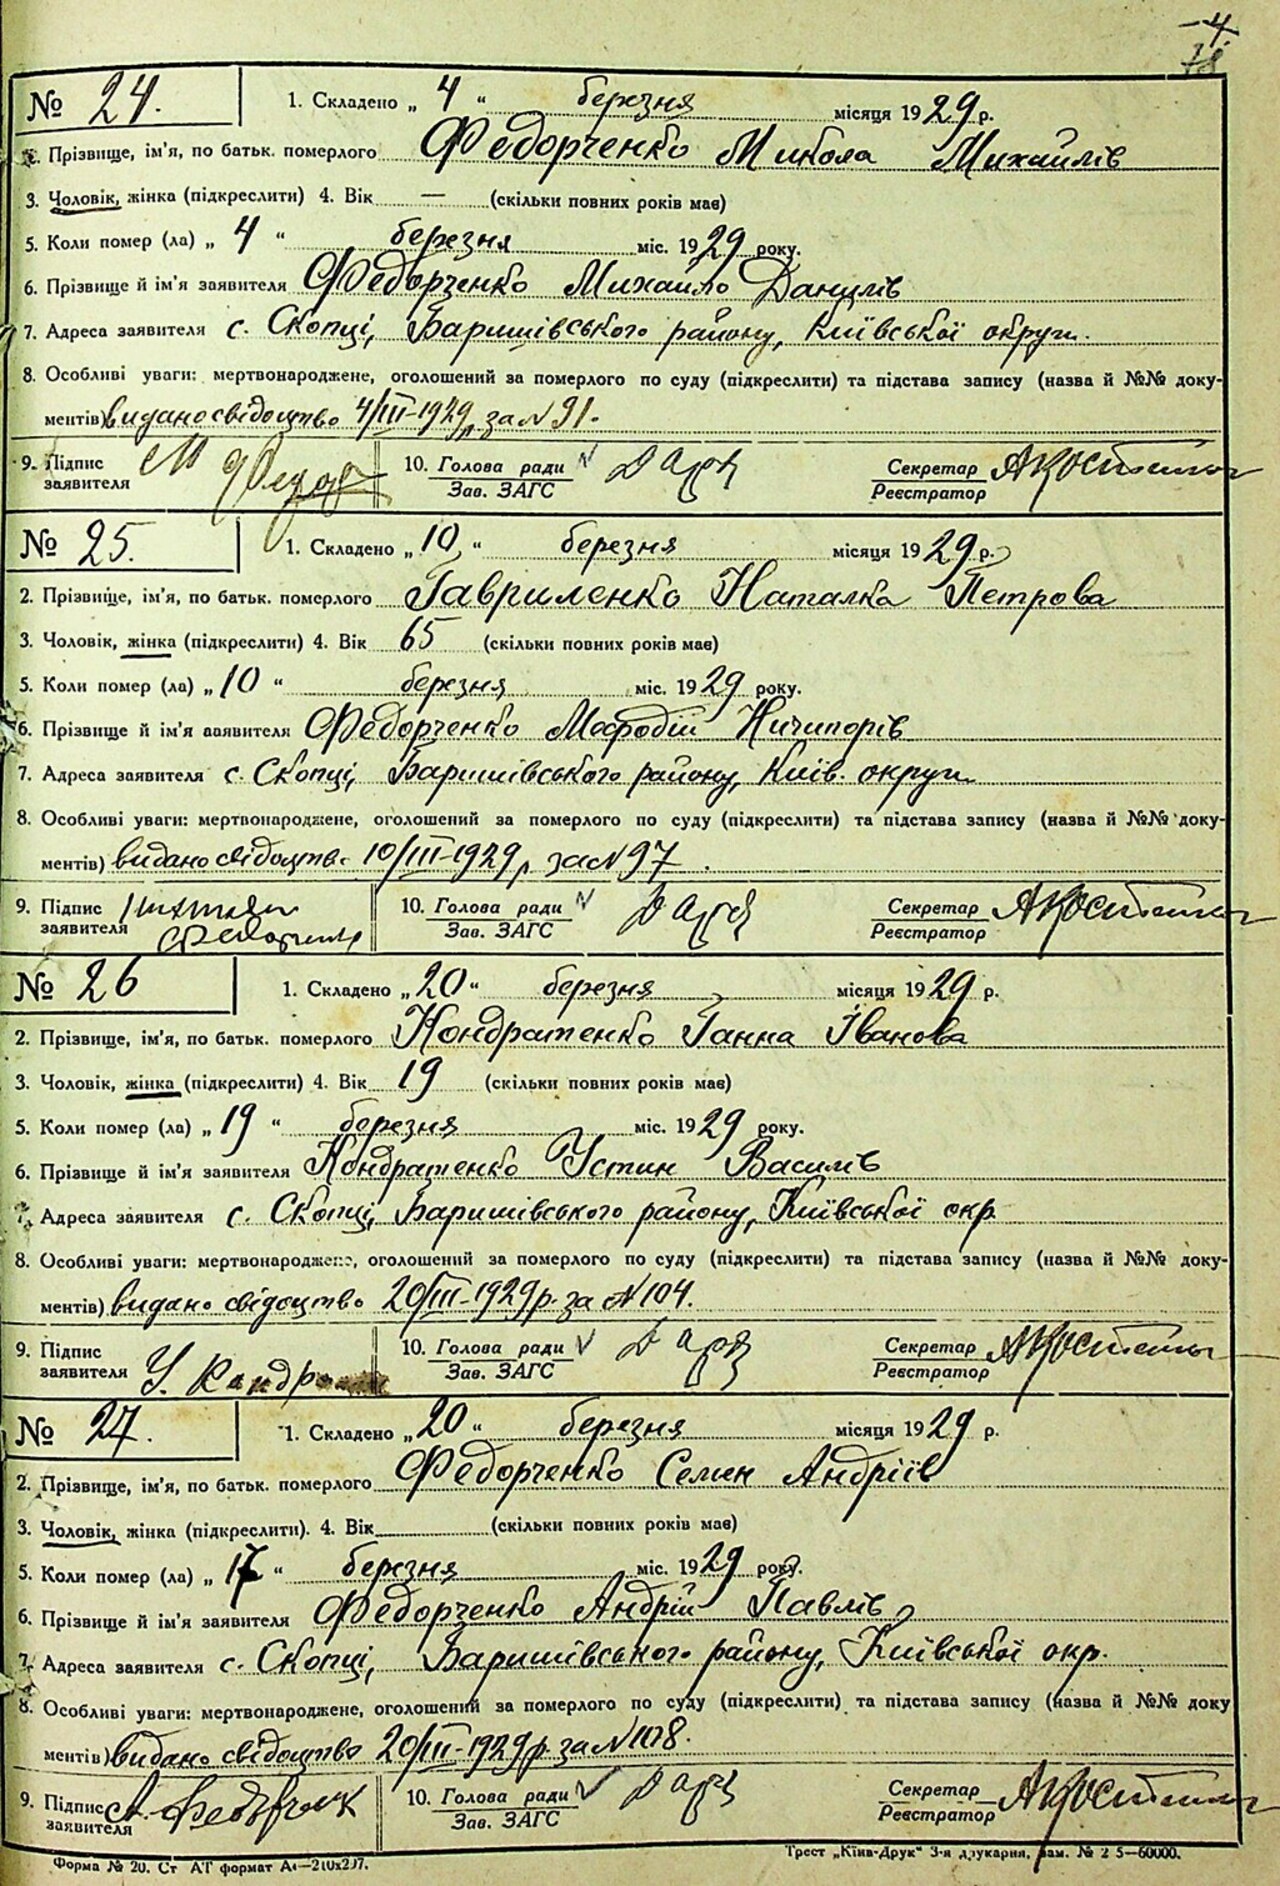 4
78
№ 24. 1. Складено „ 4 “ березня місяця 1929 р.
2. Прізвище, ім'я, по батьк. померлого Федорченко Микола Михайлів
3. Чоловік, жінка (підкреслити) 4. Вік — (скільки повних років має)
5. Коли помер (ла) „ 4 “ березня міс. 1929 року.
6. Прізвище й ім'я заявителя Федорченко Михайло Данилів
7. Адреса заявителя с. Скопці, Баришівського району, Київської округи.
8. Особливі уваги: мертвонароджене, оголошений за померлого по суду (підкреслити) та підстава запису (назва й №№ доку-
ментів) видано свідоцтво 4/III-1929р за N 91.
9. Підпис заявителя 10. Голова ради Зав. ЗАГС Секретар Реєстратор
№ 25. 1. Складено „ 10 “ березня місяця 1929 р.
2. Прізвище, ім'я, по батьк. померлого Гавриленко Наталка Петрова
3. Чоловік, жінка (підкреслити) 4. Вік 65 (скільки повних років має)
5. Коли помер (ла) „ 10 “ березня міс. 1929 року.
6. Прізвище й ім'я заявителя Федорченко Мефодій Ничипорів
7. Адреса заявителя с. Скопці, Баришівського району, Київ. округи
8. Особливі уваги: мертвонароджене, оголошений за померлого по суду (підкреслити) та підстава запису (назва й №№ доку-
ментів) видано свідоцтво 10/III-1929р за N 97.
9. Підпис заявителя 10. Голова ради Зав. ЗАГС Секретар Реєстратор
№ 26 1. Складено „ 20 “ березня місяця 1929 р.
2. Прізвище, ім'я, по батьк. померлого Кондратенко Ганна Іванова
3. Чоловік, жінка (підкреслити) 4. Вік 19 (скільки повних років має)
5. Коли помер (ла) „ 19 “ березня міс. 1929 року.
6. Прізвище й ім'я заявителя Кондратенко Устин Василів
7. Адреса заявителя с. Скопці, Баришівського району, Київської окр.
8. Особливі уваги: мертвонароджене, оголошений за померлого по суду (підкреслити) та підстава запису (назва й №№ доку-
ментів) видано свідоцтво 20/III-1929р. за N 104.
9. Підпис заявителя У. Кандр 10. Голова ради Зав. ЗАГС Секретар Реєстратор
№ 27. 1. Складено „ 20 “ березня місяця 1929 р.
2. Прізвище, ім'я, по батьк. померлого Федорченко Семен Андріїв
3. Чоловік, жінка (підкреслити). 4. Вік (скільки повних років має)
5. Коли помер (ла) „ 17 “ березня міс. 1929 року.
6. Прізвище й ім'я заявителя Федорченко Андрій Павлів
7. Адреса заявителя с. Скопці, Баришівського району, Київської окр.
8. Особливі уваги: мертвонароджене, оголошений за померлого по суду (підкреслити) та підстава запису (назва й №№ доку
ментів) видано свідоцтво 20/III-1929р. за N 108.
9. Підпис заявителя 10. Голова ради Зав. ЗАГС Секретар Реєстратор
Форма № 20. Ст АТ формат А4—210x297. Трест „Київ-Друк“ 3-я друкарня, зам. № 2 5—60000.